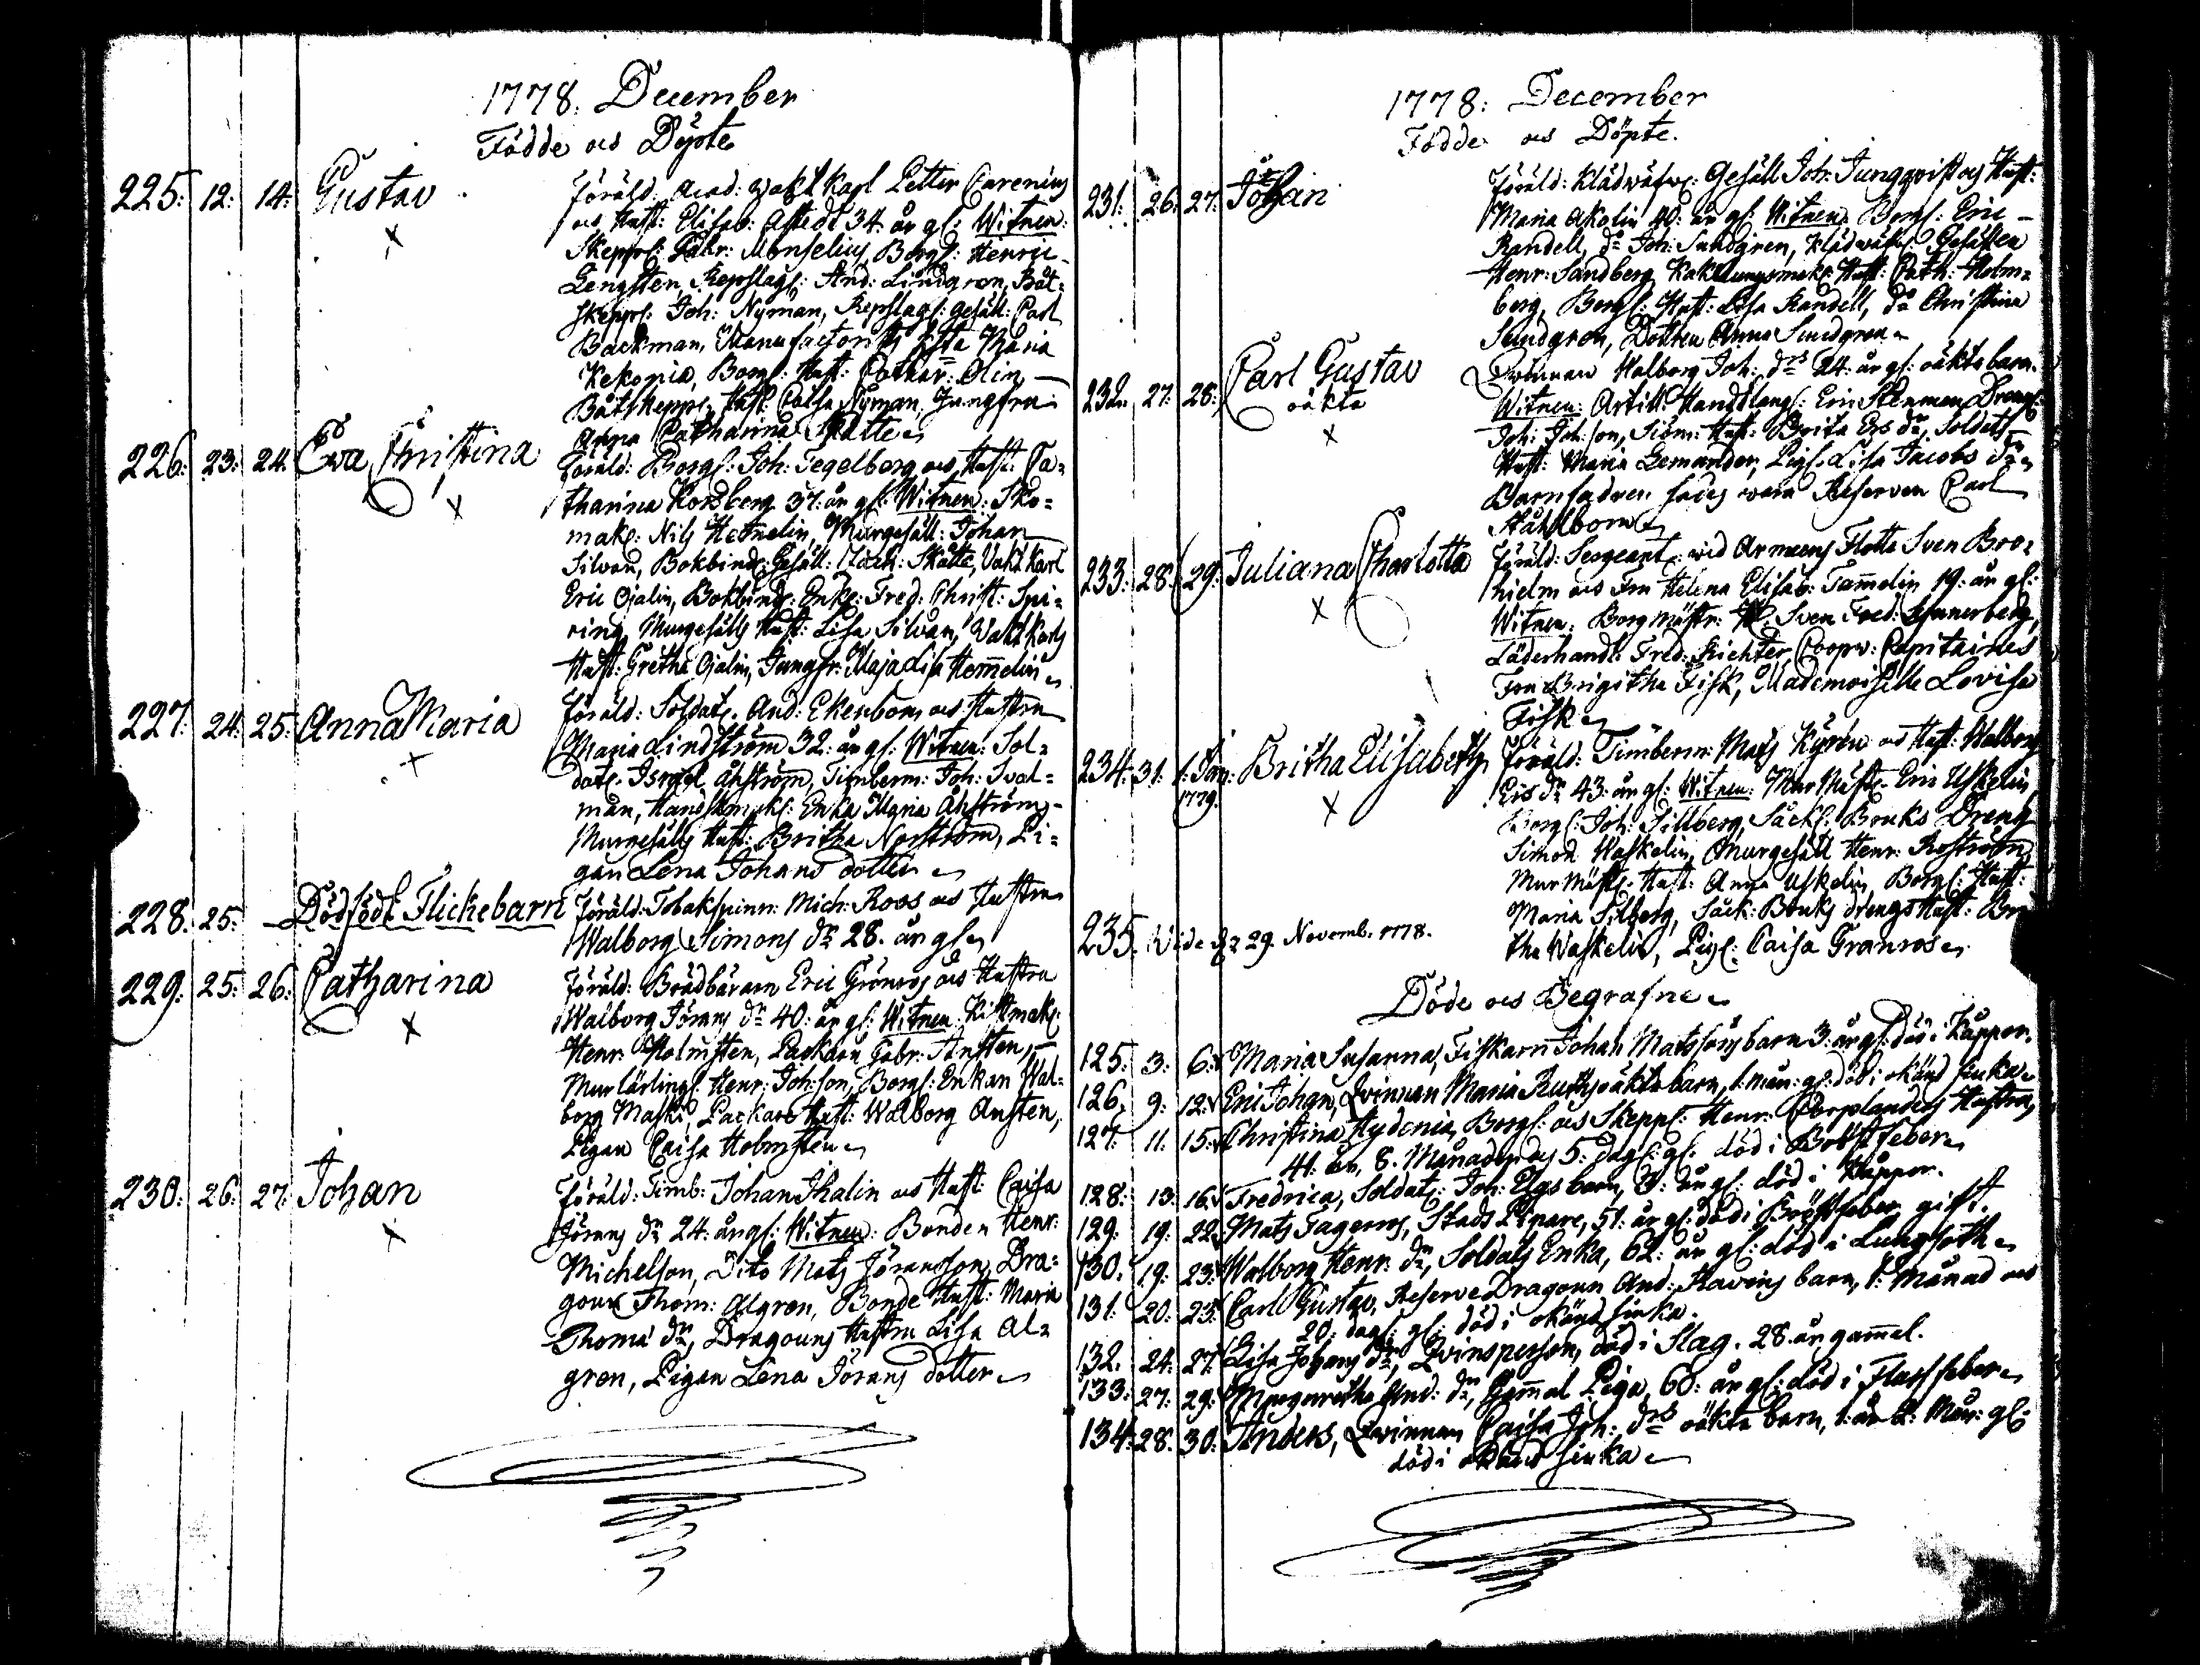 1778. December
Födde och Döpte
225. 12. 14. Gustav
Föräld: Acad: Wakt Karl Petter Carenius
och Hust: Elisab: Astedt 34. år gl: Witnen:
Skeppr: Gabr: Monselius, Borg: Henric
Lengsten, Repslag: And: Lindgren, Båt-
skeppr: Joh: Nyman, Repslag: Gesäll: Carl
Backman, Manufactorist Maria
Kekonia, Borg: Hust: Cathar: Olin,
Båtskeppr: Hust: Caisa Nyman, Jungfru
Anna Catharina Skatte
226. 23. 24. Eva Christina
Föräld: Borg: Joh: Tegelberg och Hust: Ca-
tharina Korsberg 37. år gl: Witnen: Sko-
mak: Nils Hemelin, Murgesäll: Johan
Silvan, Bokbind: Gesäll: Zach: Skatte, Vakt Karl
Eric Ojalin, Bokbind: Enk: Fred: Christ: Spi-
ring, Murgesälls Hust: Lisa Silvan, Wakt Karls
Hust: Gretha Ojalin, Jungfr: Maja Lisa Hemelin
227. 24. 25. Anna Maria
Föräld: Soldat: And: Ekenbom och Hustru
Maria Lindström 32. år gl: Witnen: Sol-
dat: Israel Åhström, Timberm: Joh: Sval-
man, Handskmak: Enka Maria Åhström
Murgesälls Hust: Britha Norström, Pi-
gan Lena Johans dotter
228. 25. Dödfödt Flickebarn
Föräld: Tobakspinn: Mich: Roos och Hustru
Walborg Simons dr 28. år gl
229. 25. 26. Catharina
Föräld: Brädbäraren Eric Grönros och Hustru
Walborg Jörans dr 40. år gl: Witnen: Kistmak:
Henr: Holmsten, Packarn Gabr: Ansten,
Murlärling: Henr: Joh:son, Borg: Enkan Wal-
borg Mask, Packare Hust: Walborg Ansten,
Pigan Caisa Holmsten
230. 26. 27. Johan
Föräld: Timb: Johan Ikalin och Hust: Caisa
Jörans dr 24. år gl: Witnen: Bonden Henr:
Michelson, Dito Mats Jöransson, Dra-
goun Thom: Algren, Bonde Hust: Maria
Thomæ dr, Dragouns Hustru Lisa Al-
gren, Pigan Lena Jörans dotter
1778. December
Födde och Döpte.
231. 26. 27. Johan
Föräld: Klädwäfv: Gesäll Joh: Jungqvist och Hust:
Maria Akalin 40. år gl: Witnen: Borg: Eric
Randell, do Joh: Sundgren, Klädwäfv: Gesällen
Henr: Sandberg, Kakelungsmak: Hust: Cath: Holm-
berg, Borg: Hust: Lisa Randell, do Christina
Sundgren, Dottren Anna Sundgren
232. 27. 28. Carl Gustav
oäkta
Qvinnan Walborg Joh: drs 24. år gl: oäkta barn.
Witnen: Artill: Handtlang: Eric Stenman, Dreng:
Joh: Joh:son, Sjöm: Hust: Brita Ers dr, Soldats
Hust: Maria Lemander, Pig: Lisa Jacobs dr
Barnfadren sades wara Reserven Carl
Ståhlbom
233. 28. 29. Juliana Charlotta
Föräld: Sergeant wid Armeens Flotte Sven Bro-
hielm och Fru Helena Elisab: Tamelin 19. år gl:
Witnen: Borgmästr: Sven Fred:
Läderhandl: Fred: Richter, Coopv: Capitaines
Fru Brigitha Fisk, Mademoiselle Lovisa
Fisk
234. 31. 1. Jan: 1779. Britha Elisabeth
Föräld: Timberm: Mats Kyrén och Hust: Walborg
Ers dr 43. år gl: Witnen: Mur Mäst: Eric Uskelin,
Borg: Joh: Sillberg, Säck: Bruks Dreng
Simon Waskelin, Murgesäll Henr: Roström,
Mur Mäst: Hust: Anna Uskelin, Borg: Hust:
Maria Silberg, Säck: Bruks drengs Hust: Bri-
tha Waskelin, Pig: Caisa Granros
235. Vide d: 29. Novemb. 1778.
Döde och Begrafne
125. 3. 6. Maria Susanna, Fiskarn Johan Matssons barn 3. år gl: död i Kåppor.
126. 9. 12. Eric Johan, Qvinnan Maria Ruths oäkta barn, 1. mån: gl: död i okänd siuka
127. 11. 15. Christina Hydenia, Borg: och Skepp: Henr: Hustru,
41. år, 8. Månader och 5. dag: gl: död i Bröstfeber
128. 13. 16. Fredrica, Soldat: Joh: Elgs barn, 3. år gl: död i Kåppor.
129. 19. 22. Mats Fagerros, Stads Pipare, 51. år gl: död i Bröstfeber, gift.
130. 19. 23. Walborg Henr: dr, Soldats Enka, 62. år gl: död i Lungsoth
131. 20. 23. Carl Gustav, Reserve Dragoun And: Havins barn, 1. Månad och
20. dag: gl: död i okänd siuka.
132. 24. 27. Lisa Johans dr, Qvinsperson, död i Slag. 28. år gammal.
133. 27. 29. Margaretha And: dr, Gammal Piga, 60. år gl: död i Flussfeber
134. 28. 30. Anders, Qvinnan Caisa Joh: drs oäkta barn, 1. år 2. Mån: gl:
död i okänd siuka